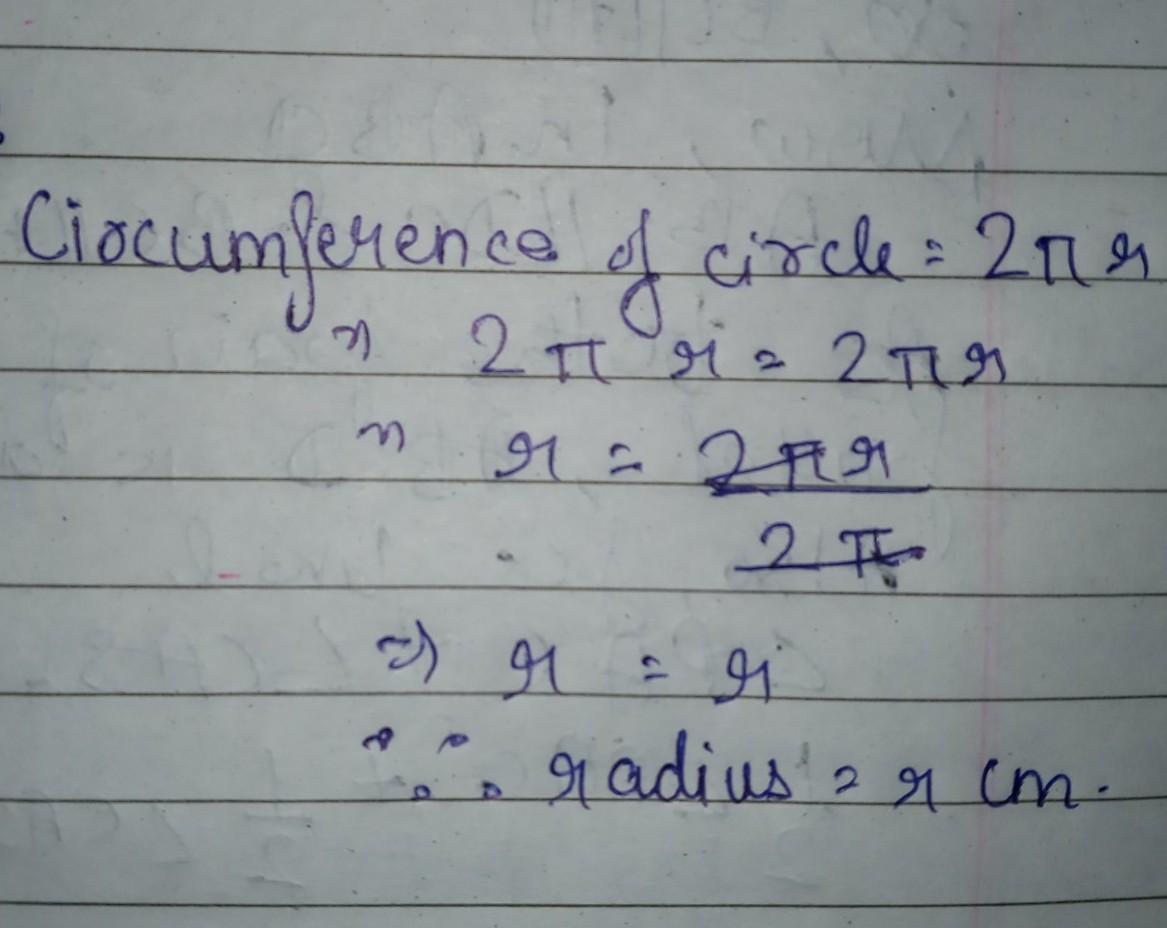 Circumference of circle = 2πr
⇒ 2πr = 2πr
⇒ r = 2πr
2π
⇒ r = r
∴ radius = r cm.